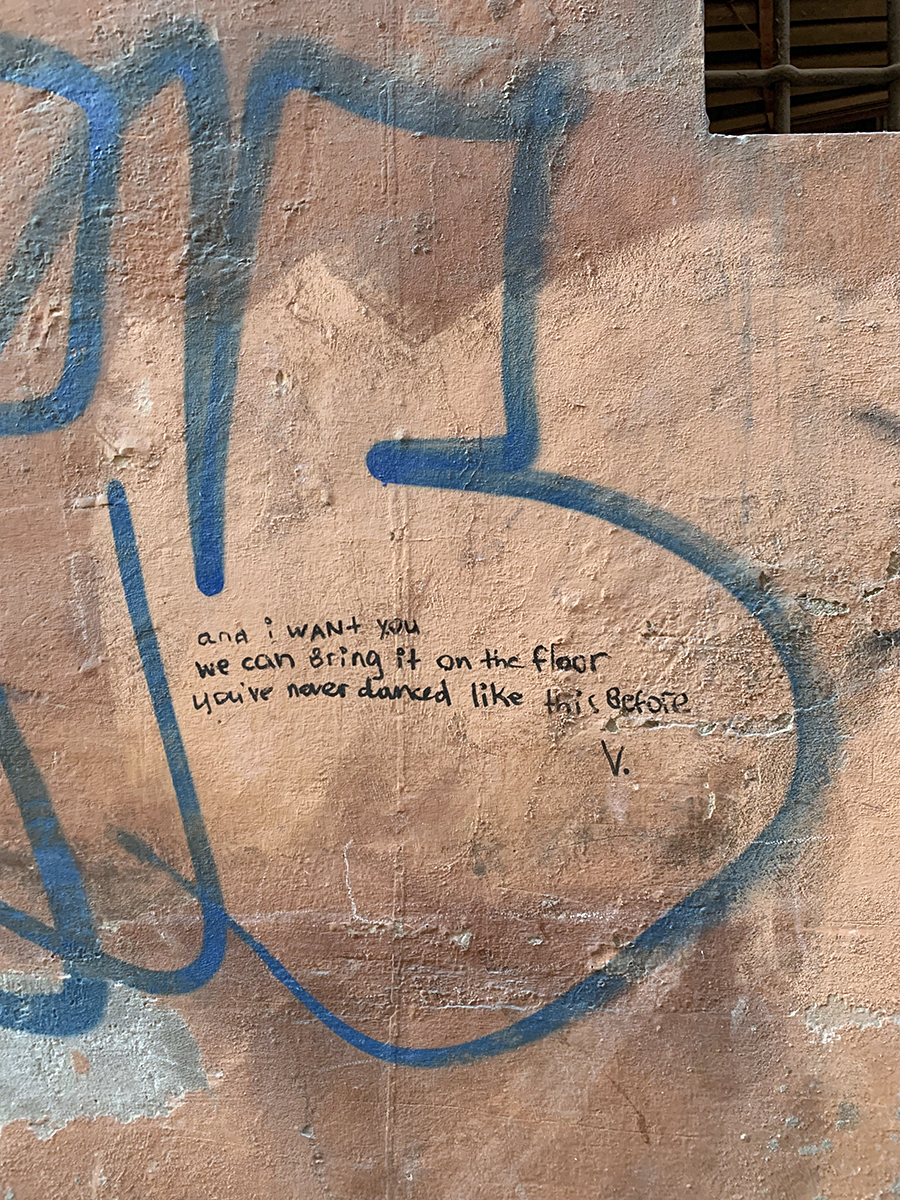 and i WANt YOU
we can Bring it on the floor
you've never danced like this Before
V.